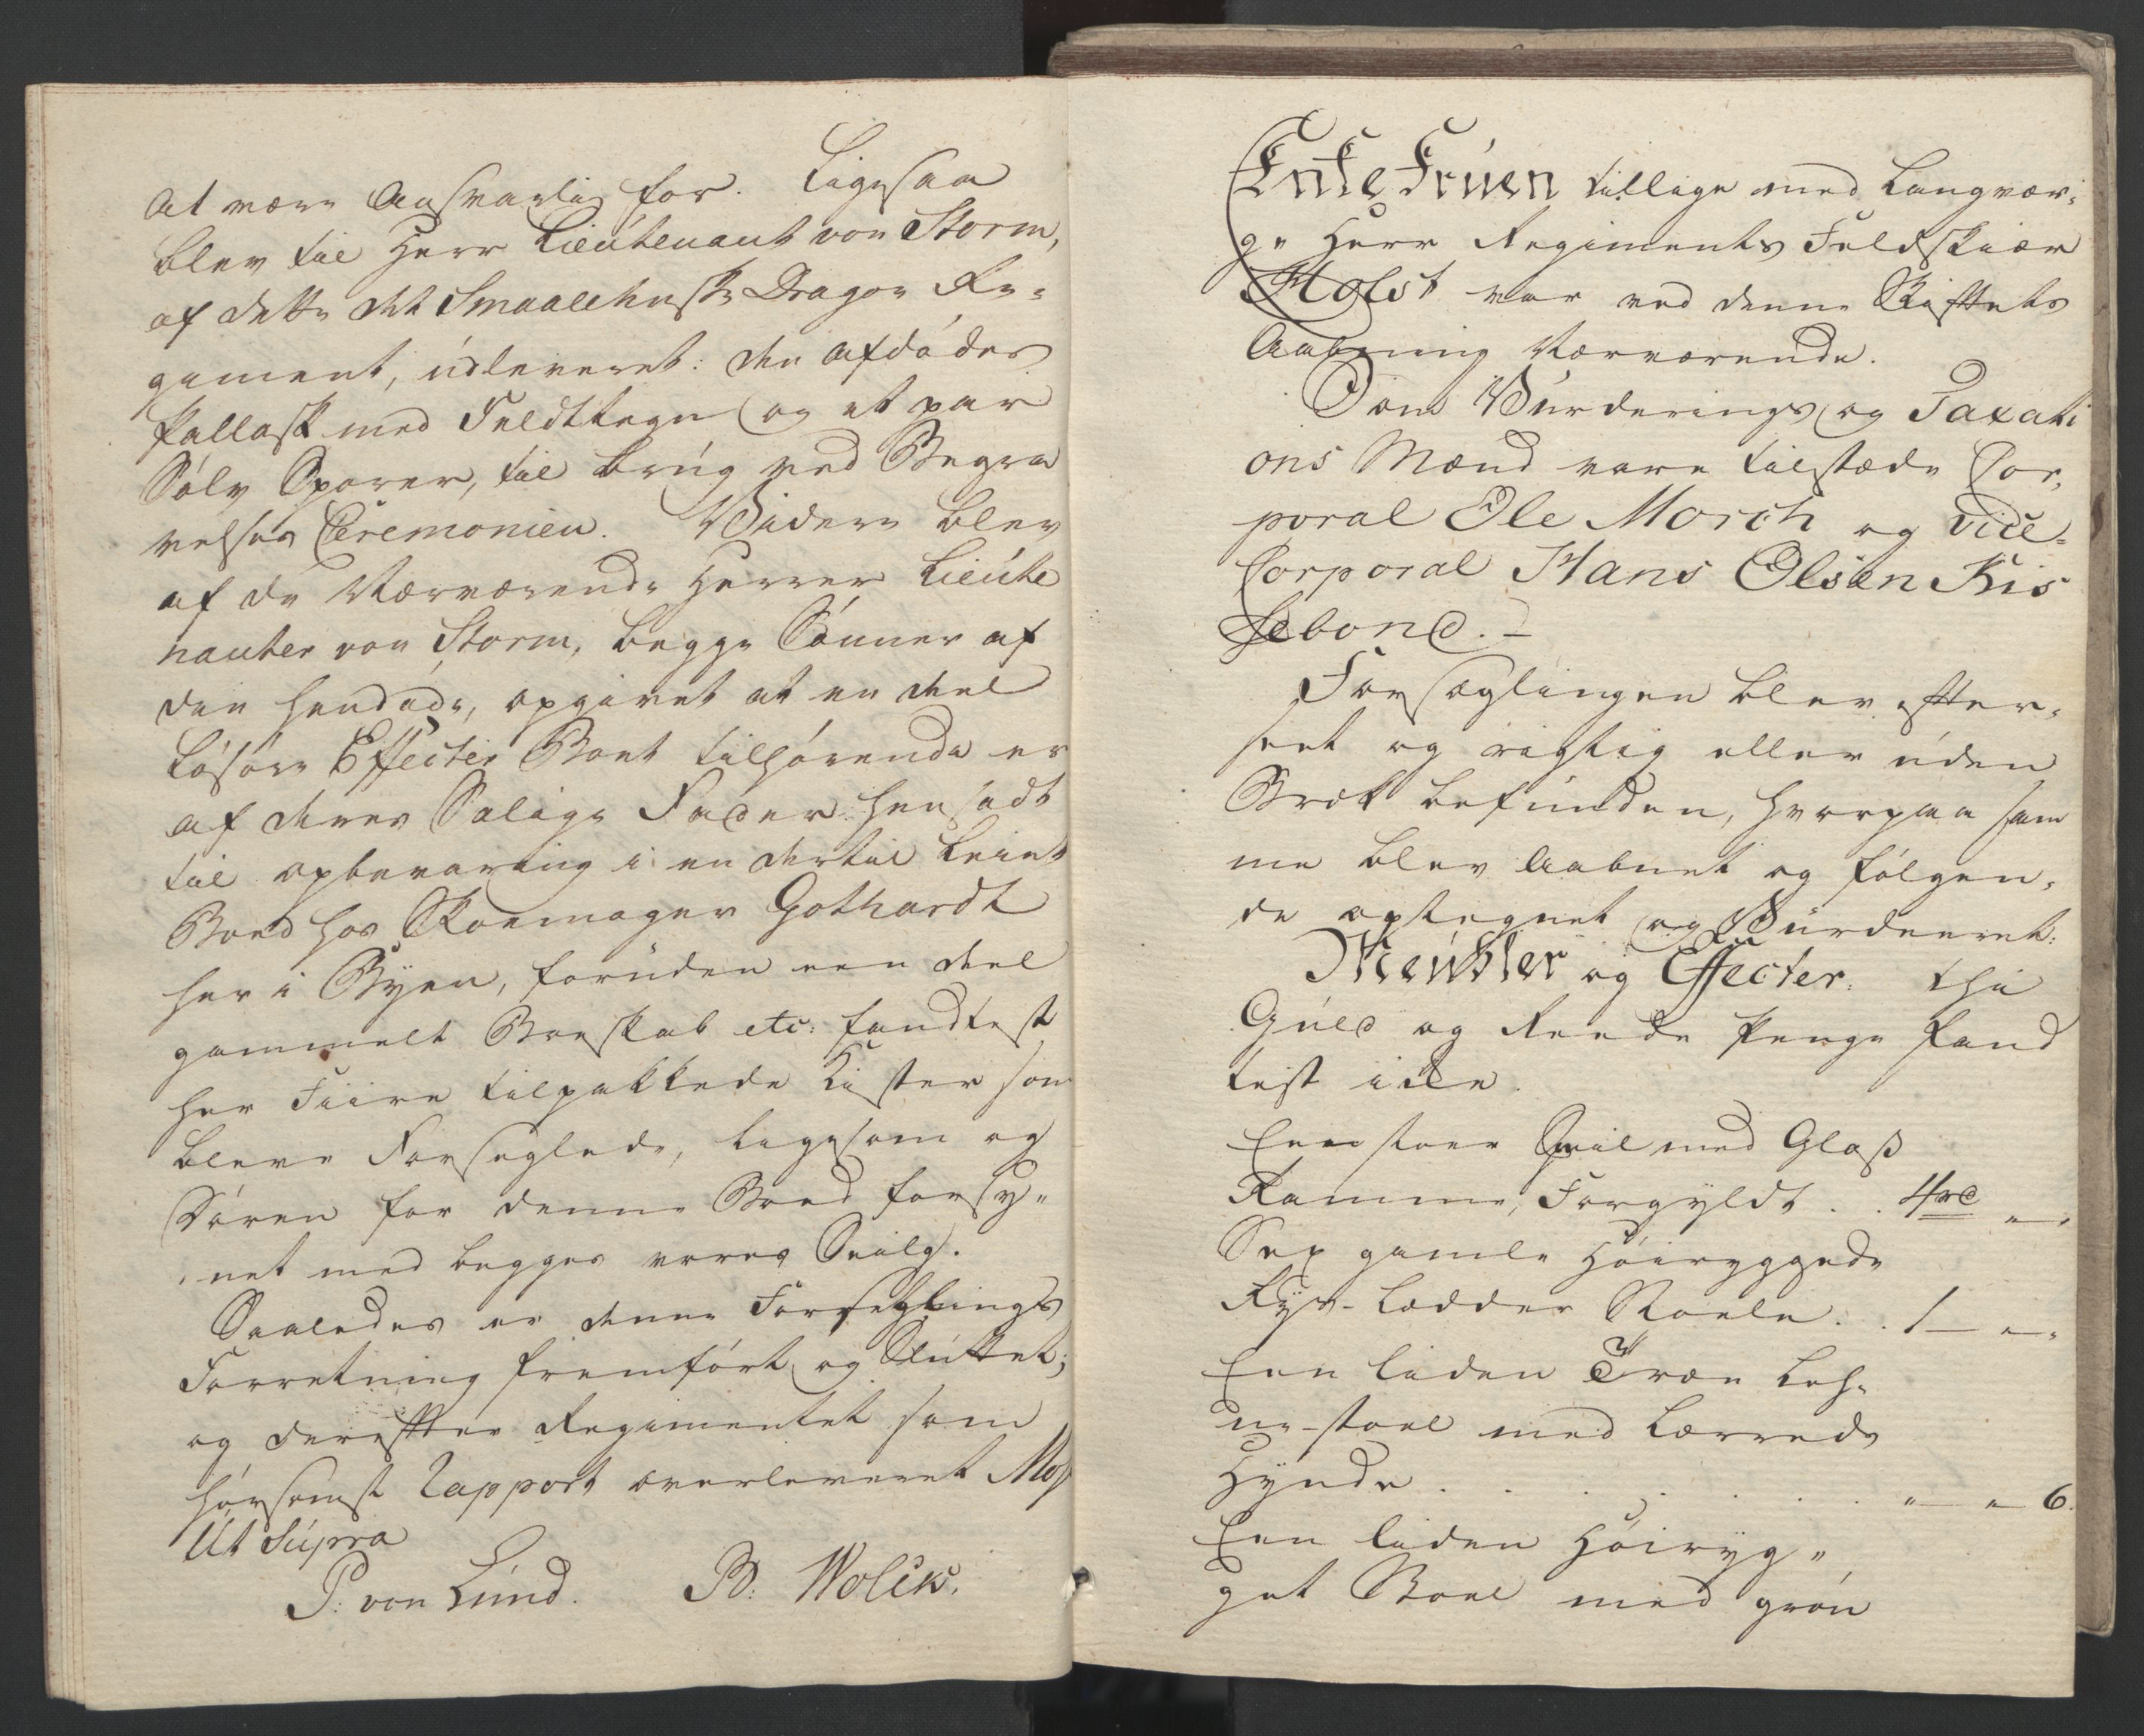 at være Ansvarlig for. Ligesaa
blev til Herr Lieutenant von Storm,
af dette det Smaalehnske Dragon Re-
giment, udleveret: den afdødes
Pallask med Feldttegn og et par
Sølv Sporer, til brug ved Begra
velses Ceremonien. Widere blev
af de Nærværende Herrer Lieute
nanter von Storm, begge Sønner af
den hendøde, opgivet at en deel
Løsøre Effecter Boet tilhørende er
af deres Salige Fader hensadt
til opbevaring i en dertil leiet
Boed hos Skoemager Gothardt
her i Byen, foruden een deel
gammelt Boeskab etc: fandtest
her Fiire tilpakkede Kister som
bleve Forseglede, ligesom og
Døren for denne Boed forsy-
net med begges vores Seigl.
Saaledes er denne Forseglings
Forretning fremført og Sluttet;
og derefter Regimentet som
hørsomst Rapport overleveret Moss
Ut Supra
P: von Lund. B: Wolck.
Enke Fruen tillige med Laugvær-
ge Herr Regiments Feldskiær
Holst var ved denne Skiftets
Aabning Nærværende.
Som Wurderings og Taxati
ons Mænd vare tilstæde Cor-
poral Ole Morch og Vice-
Corporal Hans Olsen Kis
sebond. -
Forseglingen blev efter-
seet og rigtig eller uden
Bræk befunden, hvorpaa sam
me blev Aabnet og følgen-
de optegnet og Wurderet:
Meubler og Effecter. thi
Guld og Reede Penge fand
test icke.
Een stoer Speil med Glaß
Ramme, Forgyldt . . 4rd „.
Sex gamle Høiryggede
Rys-Lædder Stoele. . 1 — „-
Een liden Træe Leh-
ne-stoel med Lærreds
Hynde . . . . . . „ — „ — 6.
Een liden Høiryg-
get Stoel med grøn